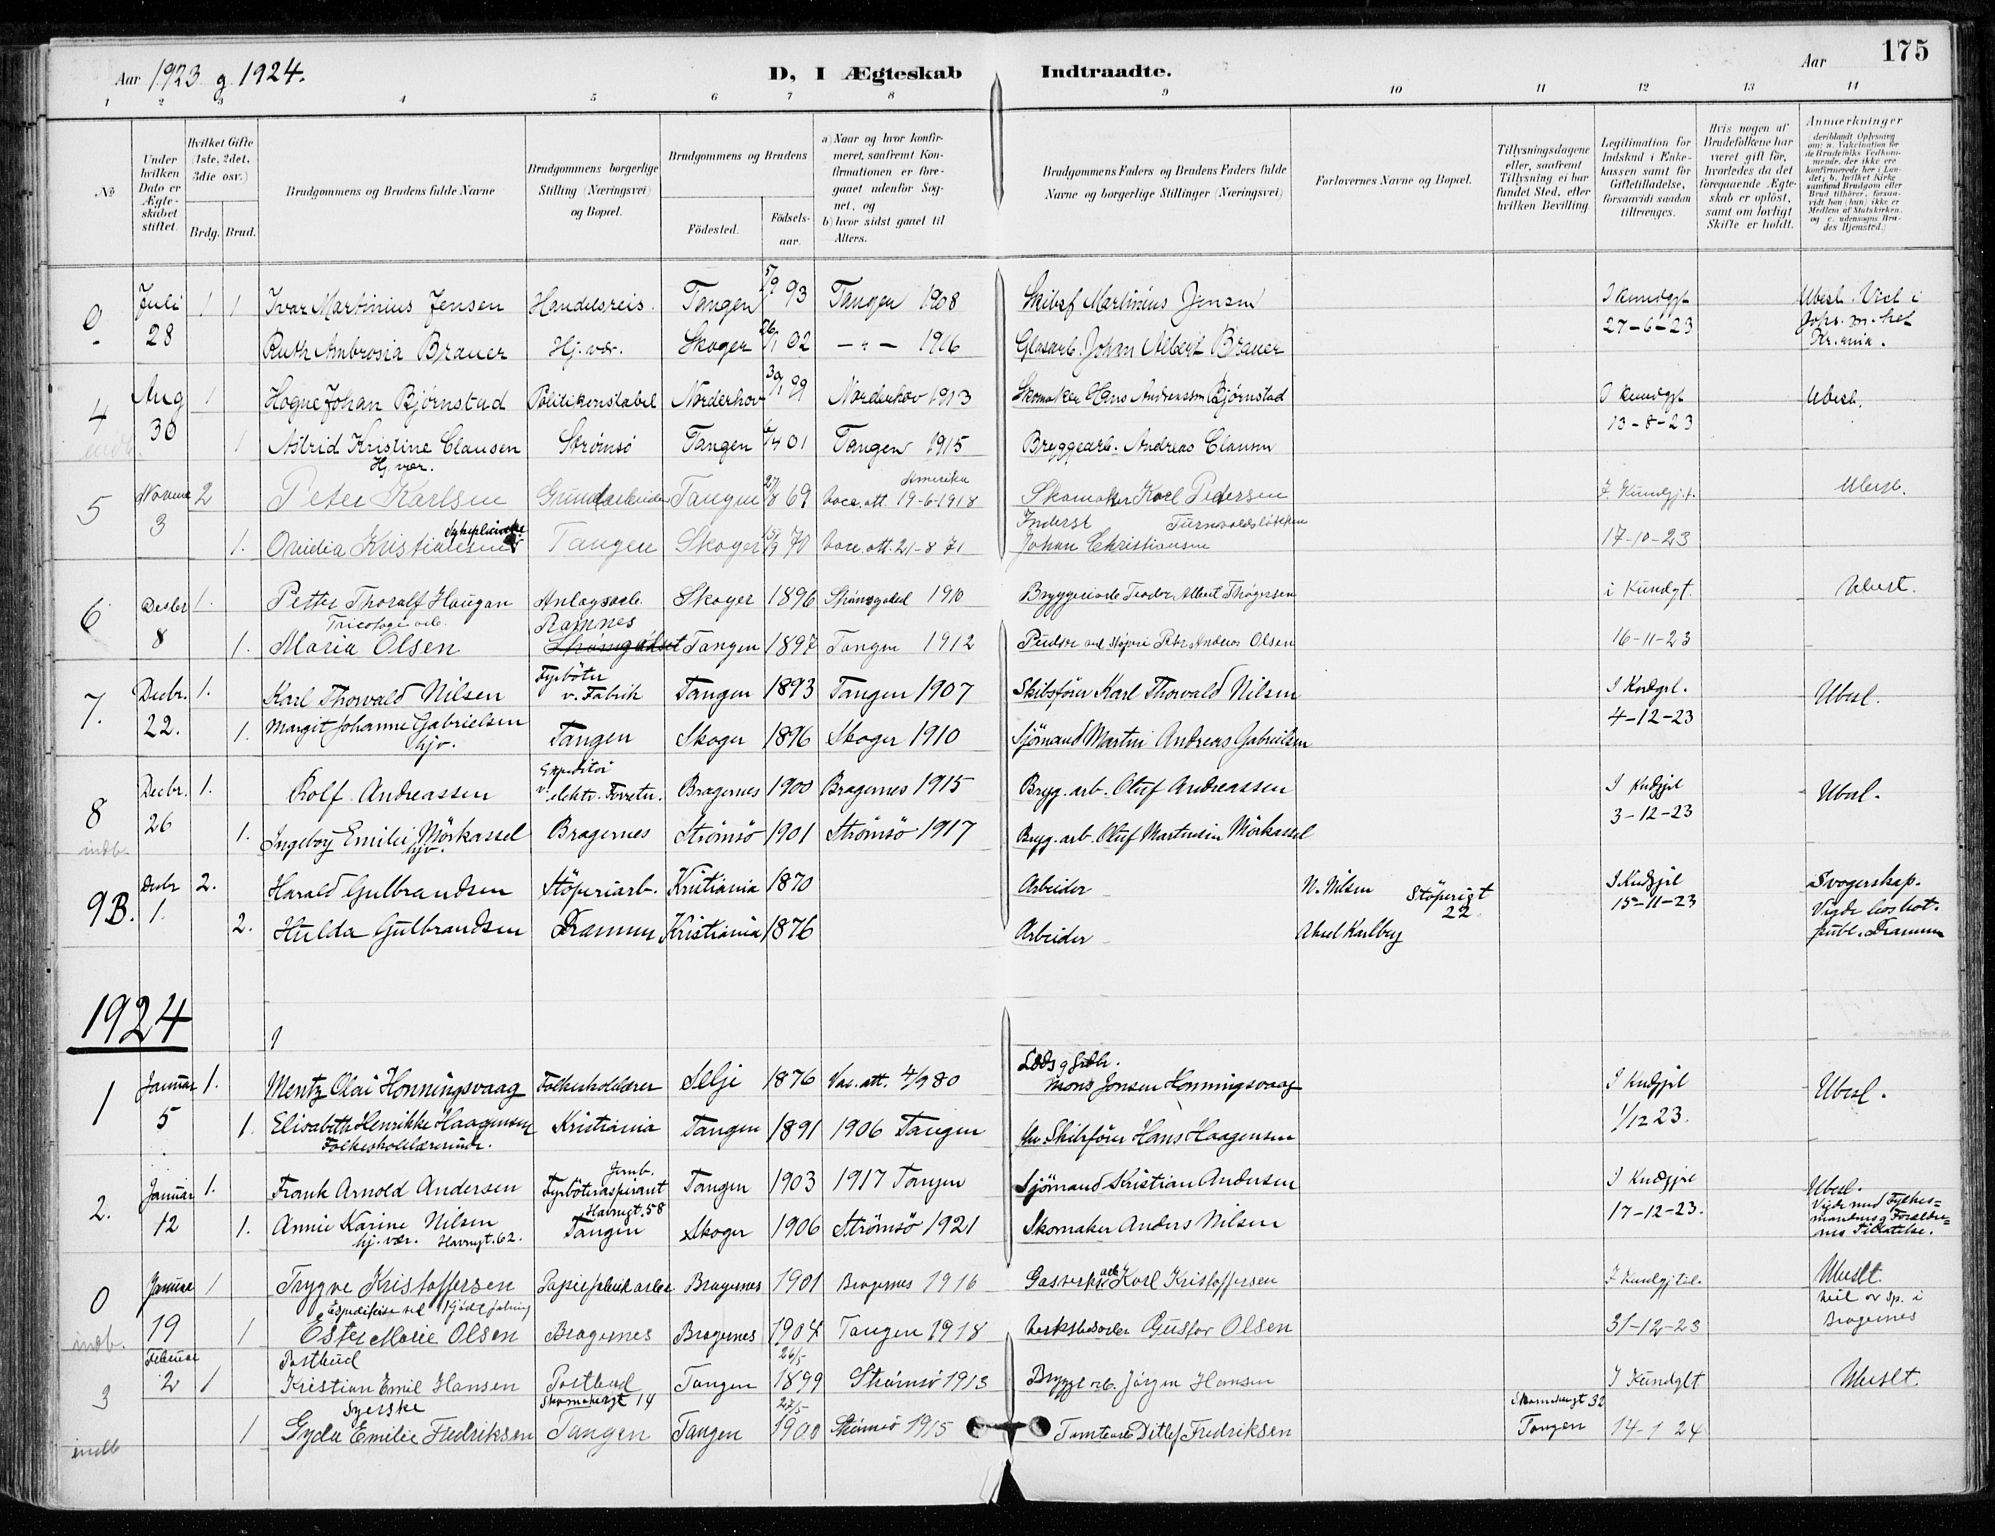 Aar 1923 g. 1924.
D, I Ægteskab Indtraadte.
Aar
175
1 2 3 4 5 6 7 8 9 10 11 12 13 14
№
Under hvilken Dato er Ægteskabet stiftet.
Hvilket Gifte (1ste, 2det, 3die osv.)
Brdg. Brud.
Brudgommens og Brudens fulde Navne
Brudgommens borgerlige Stilling (Næringsvei) og Bopæl.
Brudgommens og Brudens
Fødested.
Fødselsaar.
a) Naar og hvor konfirmeret, saafremt Konfirmationen er foregaaet udenfor Sognet, og
b) hvor sidst gaaet til Alters.
Brudgommens Faders og Brudens Faders fulde Navne og borgerlige Stillinger (Næringsvei)
Forlovernes Navne og Bopæl.
Tillysningsdagene eller, saafremt Tillysning ei har fundet Sted, efter hvilken Bevilling
Legitimation for Indskud i Enkekassen samt for Giftetilladelse, forsaavidt saadan tiltrænges.
Hvis nogen af Brudefolkene har været gift før, hvorledes da det foregaaende Ægteskab er opløst, samt om lovligt Skifte er holdt.
Anmærkninger
0 Juli 1 1 Ivar Martinius Jensen Handelsreis. Tangen 5/9 93 Tangen 1908 Skibsf Martinius Jensen I Kundgjt Ubesl. Viel i
28 Ruth Ambrosia Brauer Hj. vær. Skoger 26/1 02 — " — 1916 Glasarb. Johan Albert Brauer 27-6-23 Kr.ania.
4 Aug 1 Hogne Johan Bjørnstad Politikonstabel Norderhov 30/1 99 Norderhov 1913 Skomaker Hans Andreassen Bjørnstad I Kundgjt Ubesl.
indb. 30 1 Astrid Kristine Clausen Strømsø Tangen 01 Tangen 1915 Bryggearb. Andreas Clausen 13-8-23
Hj. vær.
5 Novmbr 2 Peter Karlsen Grundarbeider Tangen 27/8 69 Vacc. att. 19-6-1918 Amerika Skomaker Karl Pedersen I Kundgjt. Ubesl.
3 1. Ovidia Kristiansen Sykepleierske Tangen Skoger 70 Vacc. att. 21-8 71 Inderst Johan Christiansen 17-10-23
6 Desbr 1. Petter Thoralf Haugan Anlægsarb. Skoger 1896 Strømsgodset 1910 Bryggeriarb Teodor Albert Thøgersen i Kundgt. Ubesl.
8 1. Tricotage arb. Maria Olsen Ramnes Strømsgodset Tangen 1897 Tangen 1912 Pudser ved Støperi Peter Andreas Olsen 16-11-23
7. Decbr. 1. Karl Thorvald Nilsen Fyrböter v. Fabrik Tangen 1893 Tangen 1907 Skibsfører Karl Thorvald Nilsen I Kndgjl. Ubesl.
22. 1. Margit Johanne Gabrielsen hjv. Tangen Skoger 1896 Skoger 1910 Sjömand Martin Andreas Gabrielsen 4-12-23
8 Decbr. 1. Rolf Andreassen Expeditör v. elektr. Forretn. Bragernes 1900 Bragernes 1915 Brygg. arb. Oluf Andreassen I Kndgjl Ubesl.
indb. 26 1. Ingeborg Emilie Mörkassel hjv. Bragernes Strömsö 1901 Strömsö 1917 Brygg. arb. Oluf Martinsen Mörkassel 3-12-23
9B. Decbr 2. Harald Gulbrandsen Stöperiarb. Kristiania 1870 Arbeider N. Nilsen Stöperigt 22 I Kndgjl 15-11-23 Svogerskap.
1. 2. Hulda Gulbrandsen Drammen Kristiania 1876 Arbeider Aksel Karlberg Vigde hos not. publ. Drammen
1924
1 Januar 1. Mentz Olai Honningsvaag Folkeskolelærer Selje 1876 Vac. att. 4/9 80 Lods g Gdbr. Mons Jonsen Honningsvaag I Kndgjl Ubesl.
5 1. Elisabeth Henrikke Haagensen Folkeskolelærerinde. Kristiania Tangen 1891 1906 Tangen Skibsfører Hans Haagensen 1/12 23.
2. Januar 1. Frank Arnold Andersen Jernb. Fyrböteraspirant Havnegt. 58 Tangen 1903 1917 Tangen Sjömand Kristian Andersen I Kndgjl Ubesl.
12 1. Annie Karine Nilsen hj. vær. Havnegt. 62. Tangen Skoger 1906 Strömsö 1921 Skomaker Anders Nilsen 17-12-23. Vigde med Fylkesmandens g Forældrenes Tillatelse.
0 Januar 1 Trygve Kristoffersen Papirfabrikarbei Bragernes 1901 Bragernes 1916 Gasverks arb Karl Kristoffersen I Kundgjtel. Ubeslt.
indb. 19 1 Ester Marie Olsen Bragernes Bragernes 1904 Tangen 1918 Verkstedarb Gustav Olsen 31-12-23 Viel av sp. i Bragernes
3 Februar 2 1 Postbud Kristian Emil Hansen Postbud Skomakergt 14 Tangen 26/5 1899 Strømsö 1913 Brygge arb. Jörgen Hansen I Kundgtt Ubeslt.
indb 1 Syerske Gyda Emilie Fredriksen Tangen Tangen 27/5 1900 Strømsö 1915 Tomtearb Ditlef Fredriksen Tangen 14-1 24